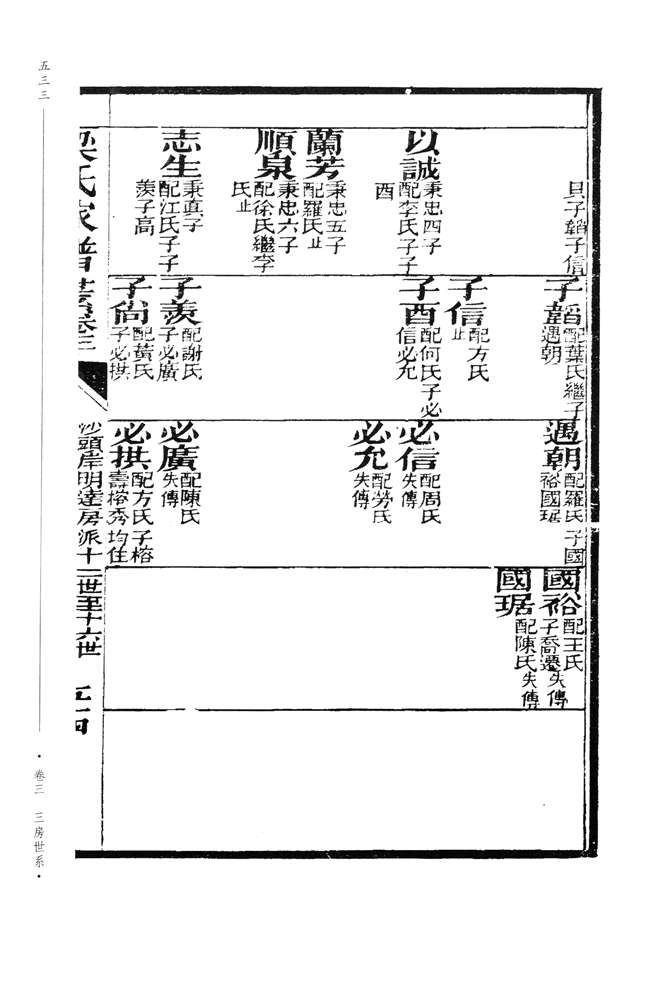 子韜子信
以誠
秉忠四子
配李氏子子
酉
蘭芳
秉忠五子
配羅氏止
順泉
秉忠六子
配徐氏繼李
氏止
志生
秉真子
配江氏子子
羨子高
子韜
配葉氏繼子
遇朝
子信
配方氏
止
子酉
配何氏子必
信必允
子羨
配謝氏
子必廣
子尚
配黃氏
子必拱
遇朝
配羅氏子國
裕國琚
必信
配周氏
失傳
必允
配勞氏
失傳
必廣
配陳氏
失傳
必拱
配方氏子榕
壽榕秀均住
國裕
配王氏
子喬遷失傳
國琚
配陳氏失傳
梁氏家譜 卷三
沙頭岸明達房派十二世至十六世
五三三
卷三 三房世系